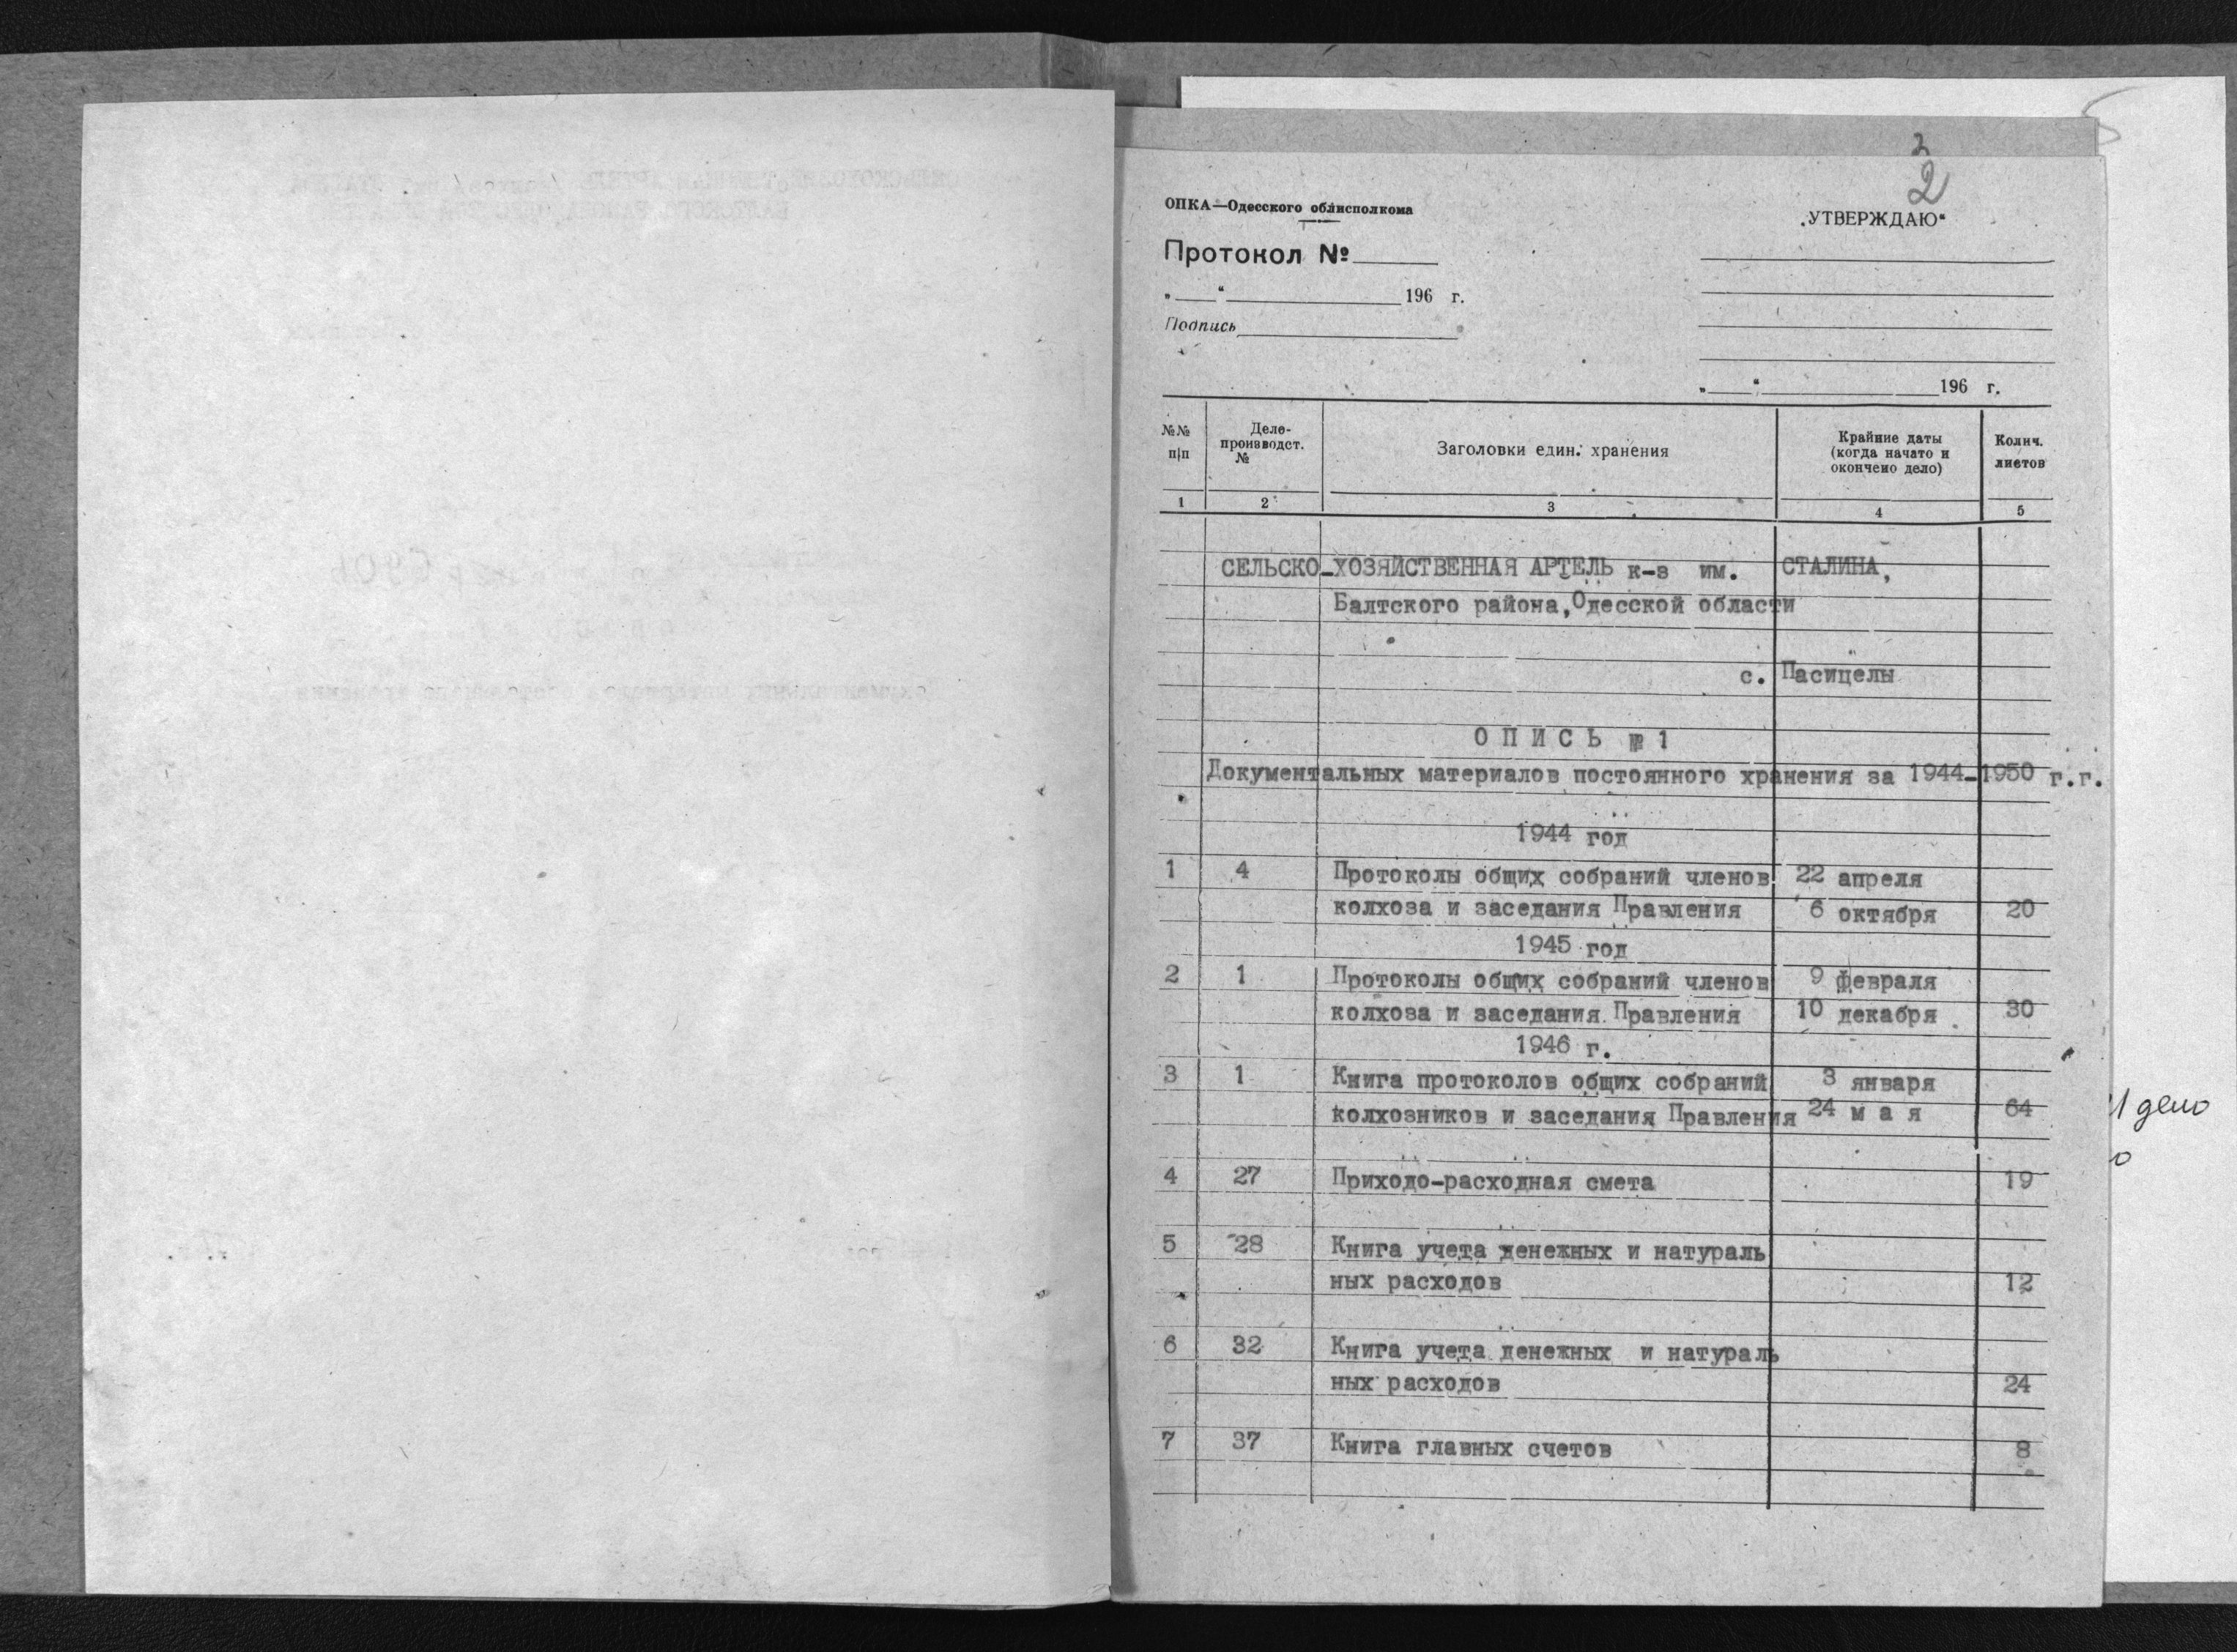 2
2
ОПКА—Одесского облисполкома
„УТВЕРЖДАЮ“
Протокол №
„ “ 196 г.
Подпись
„ “ 196 г.
№№ п/п Дело-производст. № Заголовки един. хранения Крайние даты (когда начато и окончено дело) Колич. листов
1 2 3 4 5
СЕЛЬСКО-ХОЗЯЙСТВЕННАЯ АРТЕЛЬ к-з им. СТАЛИНА,
Балтского района, Одесской области
с. Пасицелы
О П И С Ь № 1
Документальных материалов постоянного хранения за 1944-1950 г.г.
1944 год
1 4 Протоколы общих собраний членов 22 апреля
колхоза и заседания Правления 6 октября 20
1945 год
2 1 Протоколы общих собраний членов 9 февраля
колхоза и заседания Правления 10 декабря 30
1946 г.
3 1 Книга протоколов общих собраний 3 января
колхозников и заседания Правления 24 м а я 64
дело
4 27 Приходо-расходная смета 19
5 28 Книга учета денежных и натураль
ных расходов 12
6 32 Книга учета денежных и натураль
ных расходов 24
7 37 Книга главных счетов 8